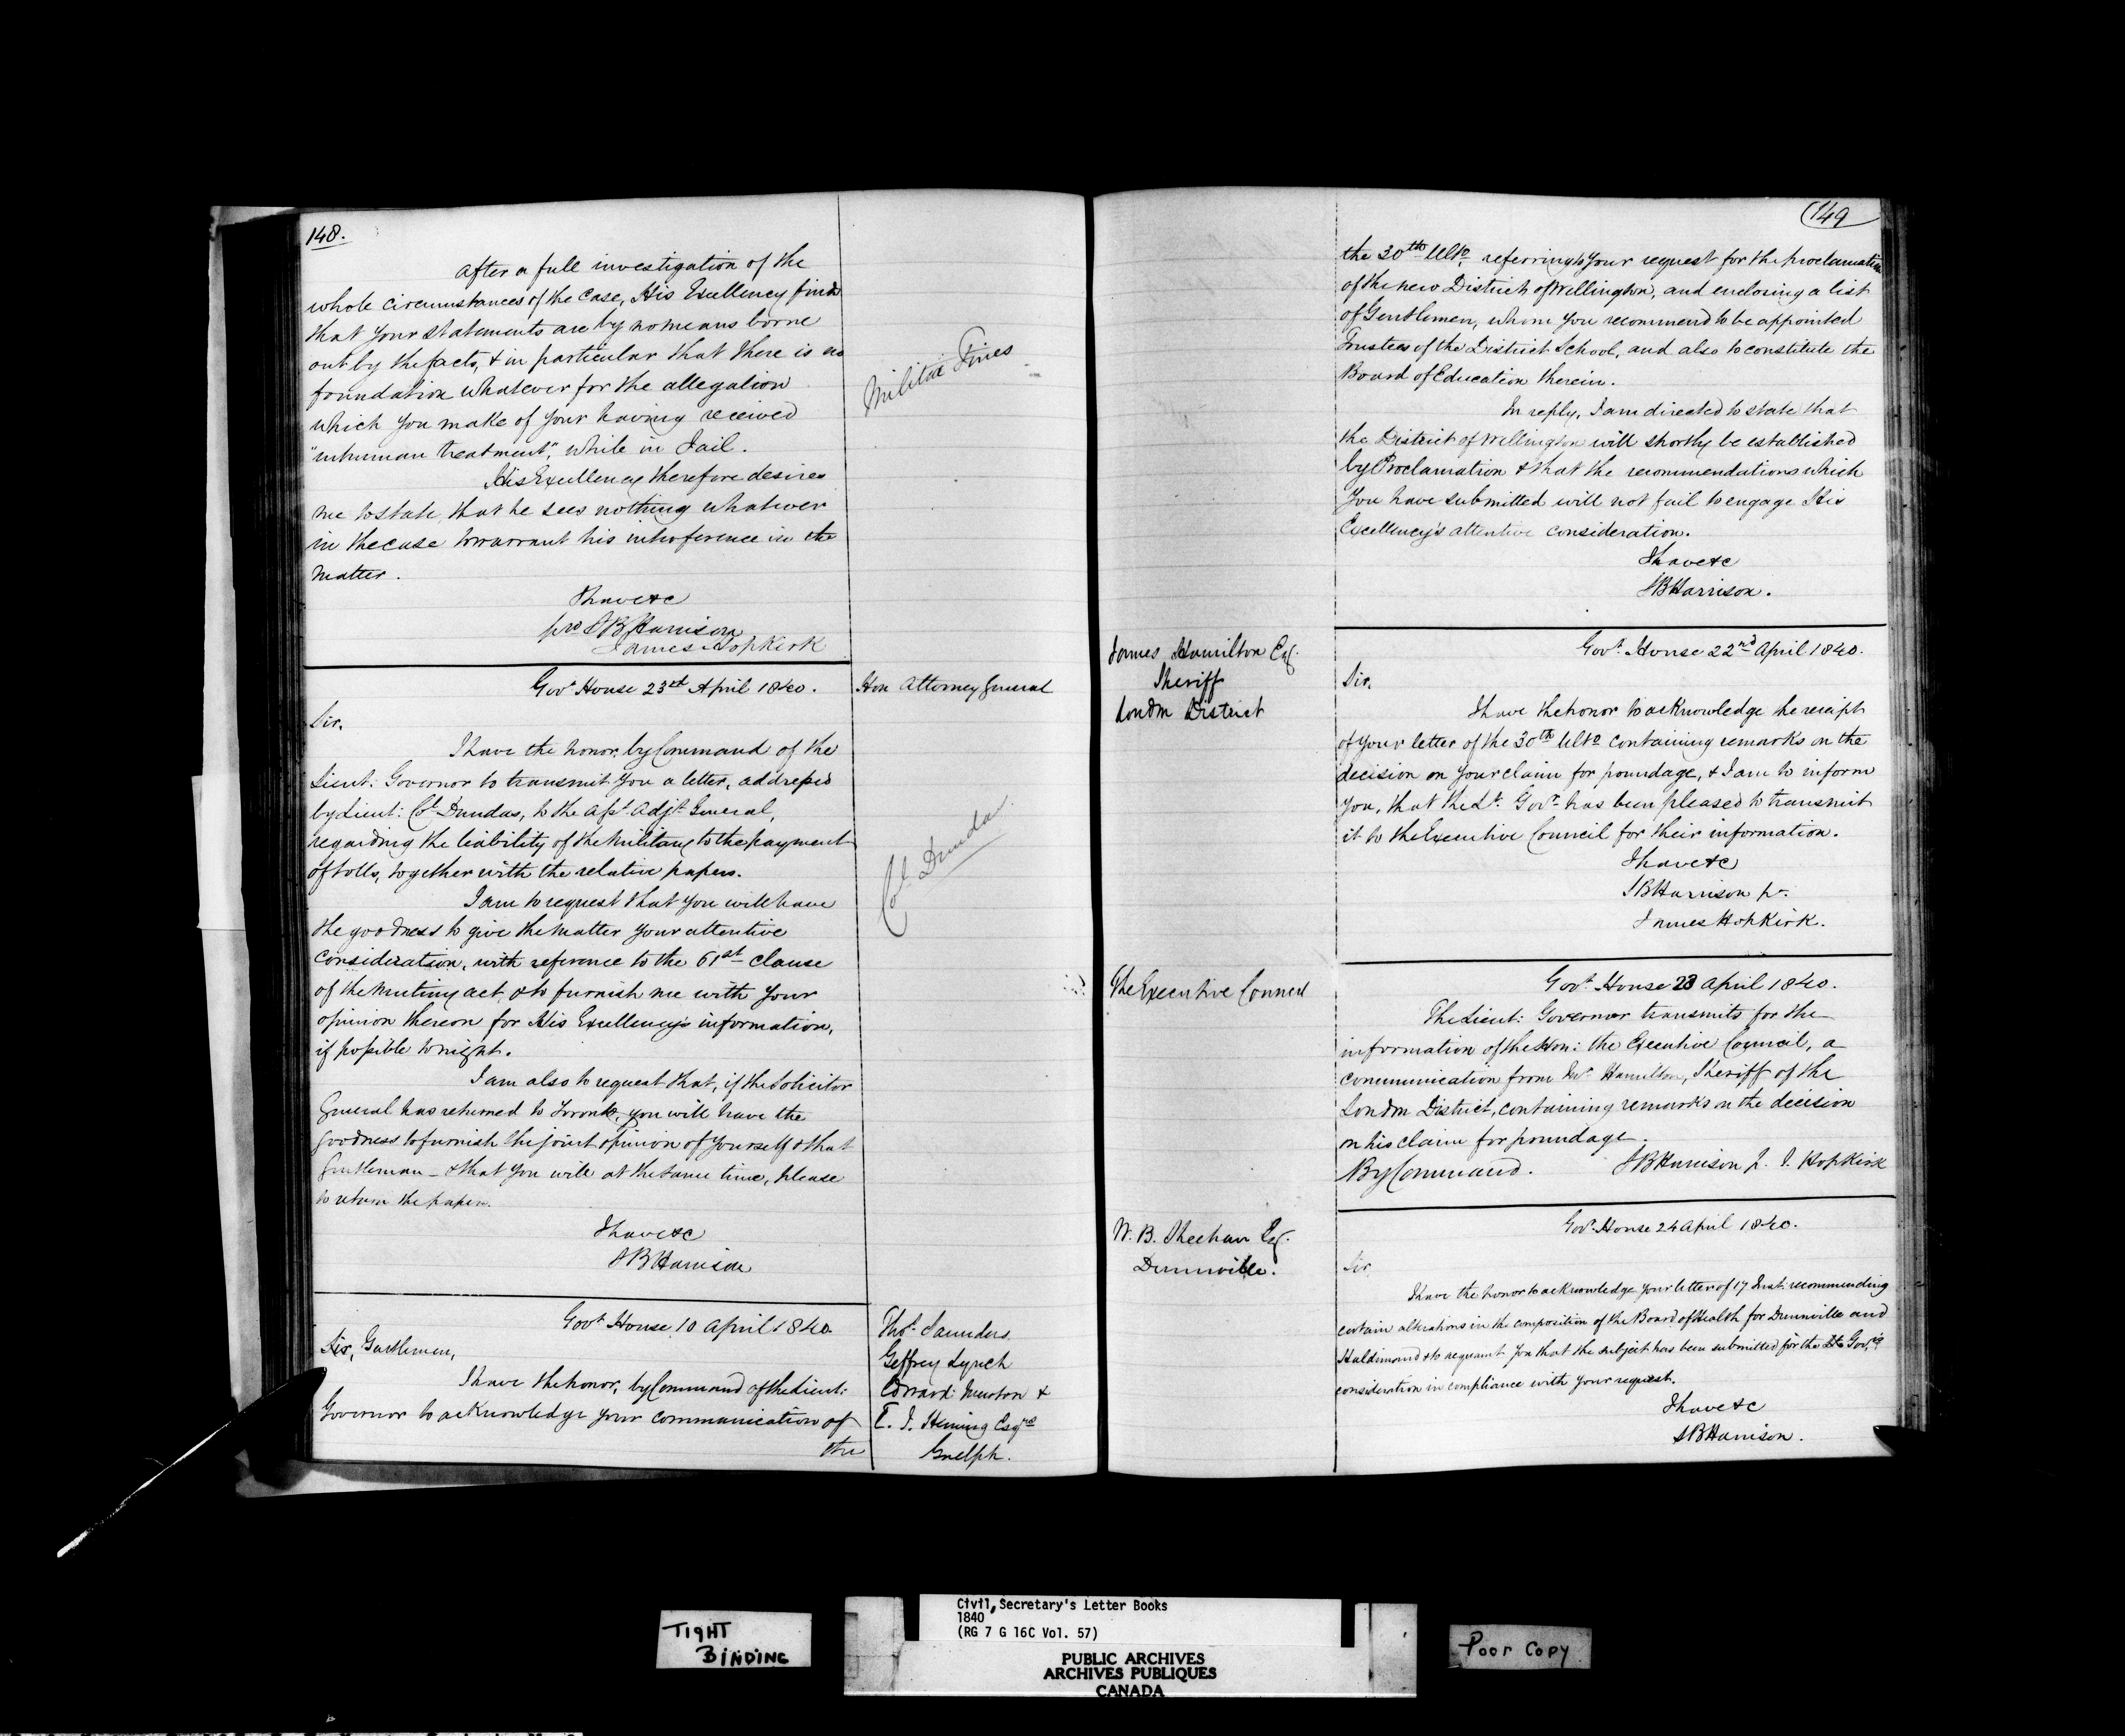 148.
After a full investigation of the
whole circumstances of the Case, His Excellency finds
that your statements are by no means borne
out by the facts, & in particular that there is no
foundation whatever for the allegation
which you make of your having received
"inhuman treatment", while in Jail.
His Excellency therefore desires
me to state, that he sees nothing whatever
in the case to warrant his interference in the
matter.
I have &c
pro S B Harrison
James Hopkirk
Militia Fines
Govt. House 23rd April 1840.
Hon Attorney General
Sir,
I have the honor, by Command of the
Lieut: Governor to transmit you a letter, addressed
by Lieut: Col. Dundas, to the Asst. Adjt. General,
regarding the liability of the Military to the payment
of tolls, together with the relative papers.
Col. Dundas
I am to request that you will have
the goodness to give the matter your attentive
consideration, with reference to the 61st clause
of the Mutiny act, & to furnish me with your
opinion thereon for His Excellency's information,
if possible tonight.
I am also to request that, if the Solicitor
General has returned to Toronto, you will have the
goodness to furnish the joint opinion of yourself & that
Gentleman – & that you will at the same time, please
to return the papers.
I have &c
S B Harrison
Govt. House 10 April 1840.
Sir, Gentlemen,
I have the honor, by Command of the Lieut:
Governor to acknowledge your communication of
the
Thos. Saunders
Geffrey Lynch
Edward Murton &
T. J. Heming Esqres
Guelph.
149
the 30th Ulto. referring to your request for the proclamation
of the new District of Wellington, and enclosing a list
of Gentlemen, whom you recommend to be appointed
Trustees of the District School, and also to constitute the
Board of Education therein.
In reply, I am directed to state that
the District of Wellington will shortly be established
by Proclamation & that the recommendations which
you have submitted will not fail to engage His
Excellency's attentive consideration.
I have &c
S B Harrison.
James Hamilton Esq.
Sheriff
London District
Govt. House 22nd April 1840.
Sir,
I have the honor to acknowledge the receipt
of your letter of the 30th Ulto containing remarks on the
decision on your claim for poundage, & I am to inform
you, that the Lt. Govr. has been pleased to transmit
it to the Executive Council for their information.
I have &c
S B Harrison pr.
James Hopkirk.
The Executive Council
Govt. House 23 April 1840.
The Lieut: Governor transmits for the
information of the Hon: the Executive Council, a
communication from Mr. Hamilton, Sheriff of the
London District, containing remarks on the decision
on his claim for poundage.
By Command. S B Harrison p. J. Hopkirk
W. B. Sheehan Esq.
Dunnville.
Govt. House 24 April 1840.
Sir
I have the honor to acknowledge your letter of 17 Inst. recommending
certain alterations in the composition of the Board of Health for Dunnville and
Haldimand & to acquaint you that the subject has been submitted for the Lt Govr.'s
consideration in compliance with your request.
I have &c
S B Harrison.
TIGHT
BINDING
Civil Secretary's Letter Books
1840
(RG 7 G 16C Vol. 57)
PUBLIC ARCHIVES
ARCHIVES PUBLIQUES
CANADA
Poor Copy